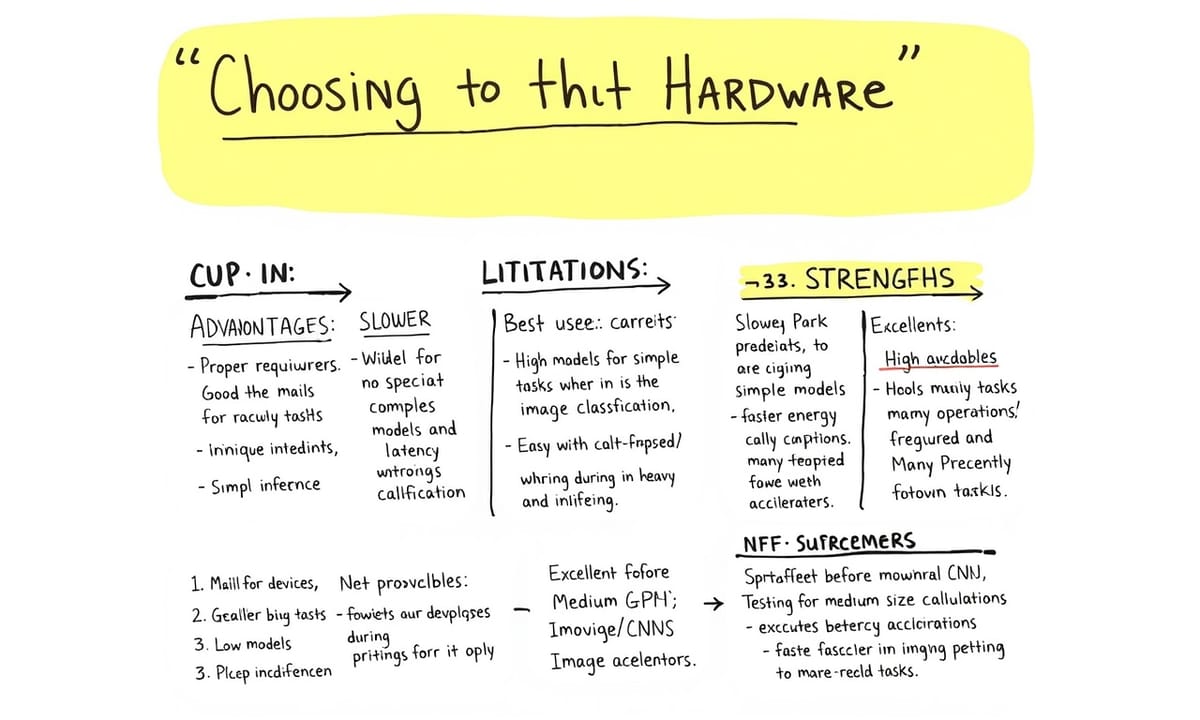 “Choosing to thit Hardware”
CUP. IN:
ADVAIONTAGES:
- Proper requiwrers.
Good the mails
for racwly tasHs
- Innique intedints,
- Simpl infernce
SLOWER
- Wildel for
no speciat
comples
models and
latency
wntrongs
callfication
LITITATIONS:
Best usee:. carreits
- High models for simple
tasks wher in is the
image classfication,
- Easy with calt-fnpsed/
whring during in heavy
and inlifeing.
¬33. STRENGFHS
Slowey Park
predeiats, to
are cigiing
simple models
- faster energy
cally cnptions.
many teopted
fowe weth
accileraters.
Excellents:
High avcdables
- Hools muniy tasks
mamy operations!
fregwred and
Many Precently
fotovn taskls.
1. Maill for devices,
2. Gealler biug tasts
3. Low models
3. Plcep incdifencen
Net prosvclbles:
- fowiets aur devplqses
during
pritings forr it oply
Excellent fofore
Medium GPM;
Imovige/CNNS
Image acelentors.
NFF. SUFRCEMERS
Sprtaffeet before mownral CNN,
Testing for medium size callulations
- exccutes betercy acclcirations
- faste fasccler im imgng petting
to mare-recld tasks.